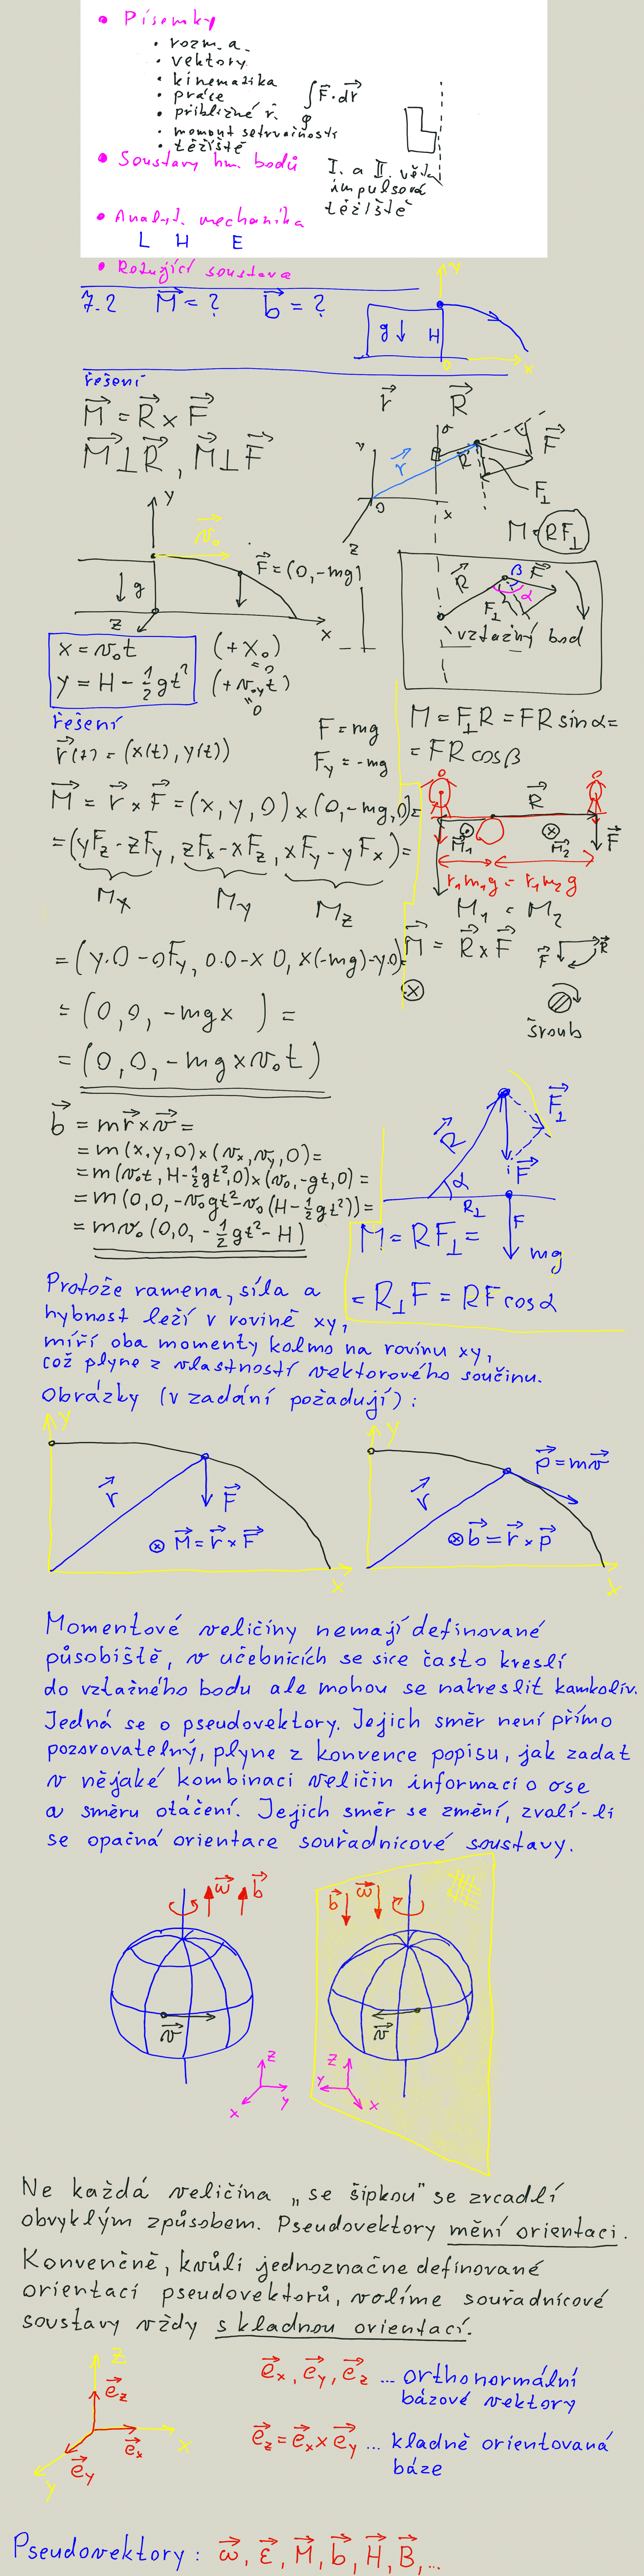 • Písemky
• rozm. a.
• vektory
• kinematika
• práce ∫F⃗·dr⃗
• přibližné ř. φ
• moment setrvačnosti
• těžiště
• Soustavy hm. bodů
I. a II. věta
impulsová
těžiště
• Analyt. mechanika
L H E
• Rotující soustava
7.2 M⃗ = ? b⃗ = ?
g↓ H
y
0 x
řešení
r⃗ R⃗
M⃗ = R⃗ × F⃗
M⃗ ⊥ R⃗, M⃗ ⊥ F⃗
y σ r⃗ R F⃗ F⊥
0 x z
M = RF⊥
y v⃗₀
F⃗ = (0, -mg)
↓g z x
R⃗ β F⃗ F⊥ α
vztažný bod
x = v₀t (+x₀) =0
y = H - ½gt² (+v₀yt) =0
řešení
r⃗(t) = (x(t), y(t))
F = mg
Fy = -mg
M = F⊥R = FR sinα =
= FR cosβ
M⃗ = r⃗ × F⃗ = (x, y, 0) × (0, -mg, 0) =
= (yFz - zFy, zFx - xFz, xFy - yFx) =
Mx My Mz
R⃗
⊙ M⃗₁ ⊗ M⃗₂ F⃗
r₁m₁g = r₁m₂g
M₁ = M₂
M⃗ = R⃗ × F⃗ F⃗ R⃗
⊗
šroub
= (y.0 - 0Fy, 0.0 - x0, x(-mg) - y.0) =
= (0, 0, -mgx ) =
= (0, 0, -mgxv₀t)
b⃗ = mr⃗ × v⃗ =
= m(x, y, 0) × (vx, vy, 0) =
= m(v₀t, H - ½gt², 0) × (v₀, -gt, 0) =
= m(0, 0, -v₀gt² - v₀(H - ½gt²)) =
= mv₀(0, 0, -½gt² - H)
R⃗ F⃗⊥ F⃗
α R⊥ F
mg
M = RF⊥ =
= R⊥F = RF cosα
Protože ramena, síla a
hybnost leží v rovině xy,
míří oba momenty kolmo na rovinu xy,
což plyne z vlastností vektorového součinu.
Obrázky (v zadání požadují):
y r⃗ F⃗
⊗ M⃗ = r⃗ × F⃗
x
y r⃗ p⃗ = mv⃗
⊗ b⃗ = r⃗ × p⃗
x
Momentové veličiny nemají definované
působiště, v učebnicích se sice často kreslí
do vztažného bodu ale mohou se nakreslit kamkoliv.
Jedná se o pseudovektory. Jejich směr není přímo
pozorovatelný, plyne z konvence popisu, jak zadat
v nějaké kombinaci veličin informaci o ose
a směru otáčení. Jejich směr se změní, zvolí-li
se opačná orientace souřadnicové soustavy.
ω⃗ b⃗
b⃗ ω⃗
v⃗
v⃗
z y x
z y x
Ne každá veličina „se šipkou" se zrcadlí
obvyklým způsobem. Pseudovektory mění orientaci.
Konvenčně, kvůli jednoznačne definované
orientaci pseudovektorů, volíme souřadnicové
soustavy vždy s kladnou orientací.
z e⃗z e⃗x x e⃗y y
e⃗x, e⃗y, e⃗z ... orthonormální
bázové vektory
e⃗z = e⃗x × e⃗y ... kladně orientovaná
báze
Pseudovektory: ω⃗, ε⃗, M⃗, b⃗, H⃗, B⃗, ...